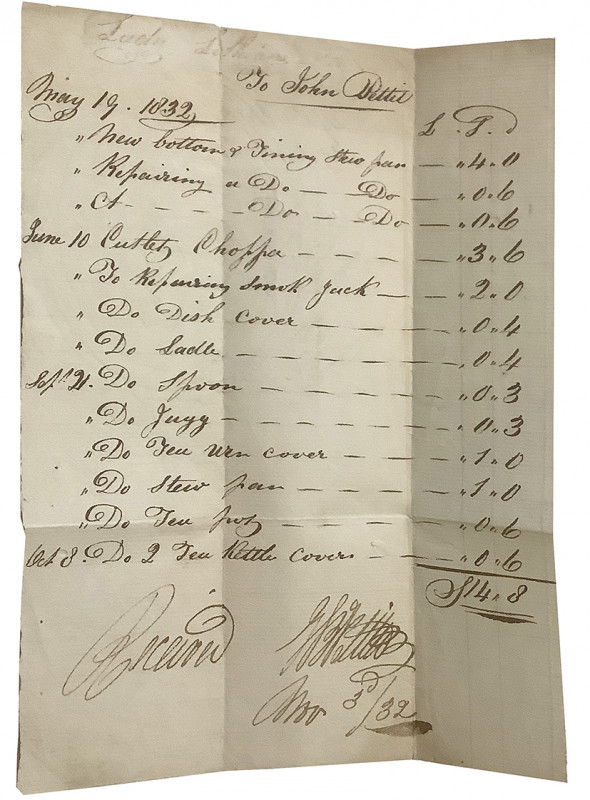 Lady
To John Pettit
May 19. 1832
L . S . d
" New bottom & Tining Stew pan — " 4 " 0
" Repairing a Do — Do — " 0 " 6
" A — — — Do — Do — " 0 " 6
June 10 Cutlet Chopper — — — — — " 3 " 6
" To Repairing Smok Jack — — " 2 " 0
" Do Dish Cover — — — — — " 0 " 4
" Do Ladle — — — — — — — " 0 " 4
Sept 21. Do Spoon — — — — — — " 0 " 3
" Do Jugg — — — — — — — " 0 " 3
" Do Tea Urn cover — — — — " 1 " 0
" Do Stew pan — — — — — " 1 " 0
" Do Tea pot — — — — — " 0 " 6
Oct 8. Do 2 Tea Kettle Covers — — — " 0 " 6
14 " 8
Received
Nov 3d/32